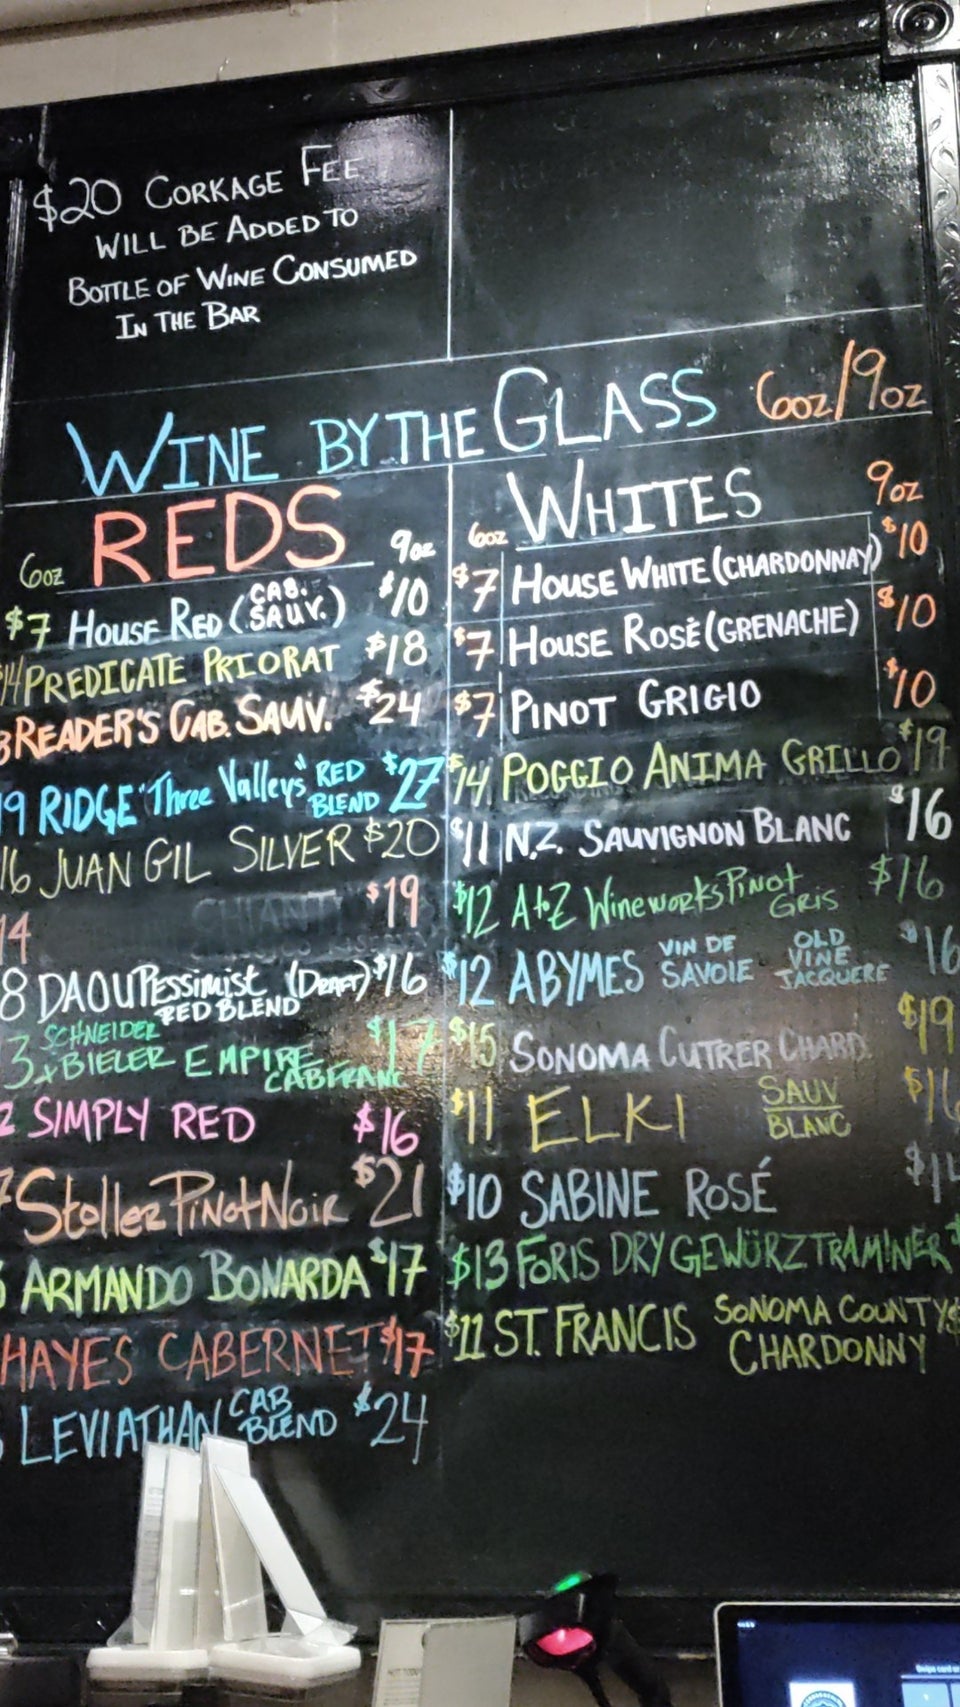 $20 CORKAGE FEE
WILL BE ADDED TO
BOTTLE OF WINE CONSUMED
IN THE BAR
WINE BY THE GLASS 6oz/9oz
6oz REDS 9oz
$7 HOUSE RED (CAB. SAUV.) $10
$14 PREDICATE PRIORAT $18
READER'S CAB. SAUV. $24
19 RIDGE "Three Valleys" RED BLEND $27
16 JUAN GIL SILVER $20
14 CHIANTI $19
8 DAOU Pessimist (DRAFT) $16
RED BLEND
3 SCHNEIDER
x BIELER EMPIRE $17
CAB FRANC
2 SIMPLY RED $16
7 Stoller Pinot Noir $21
ARMANDO BONARDA $17
HAYES CABERNET $17
LEVIATHAN CAB BLEND $24
6oz WHITES 9oz
$7 HOUSE WHITE (CHARDONNAY) $10
$7 HOUSE ROSÉ (GRENACHE) $10
$7 PINOT GRIGIO $10
$14 POGGIO ANIMA GRILLO $19
$11 N.Z. SAUVIGNON BLANC $16
$12 A to Z Wineworks Pinot GRIS $16
$12 ABYMES VIN DE SAVOIE OLD VINE JACQUERE $16
$15 SONOMA CUTRER CHARD. $19
$11 ELKI SAUV BLANC $16
$10 SABINE ROSÉ
$13 FORIS DRY GEWÜRZTRAMINER $
$11 ST. FRANCIS SONOMA COUNTY $
CHARDONNY